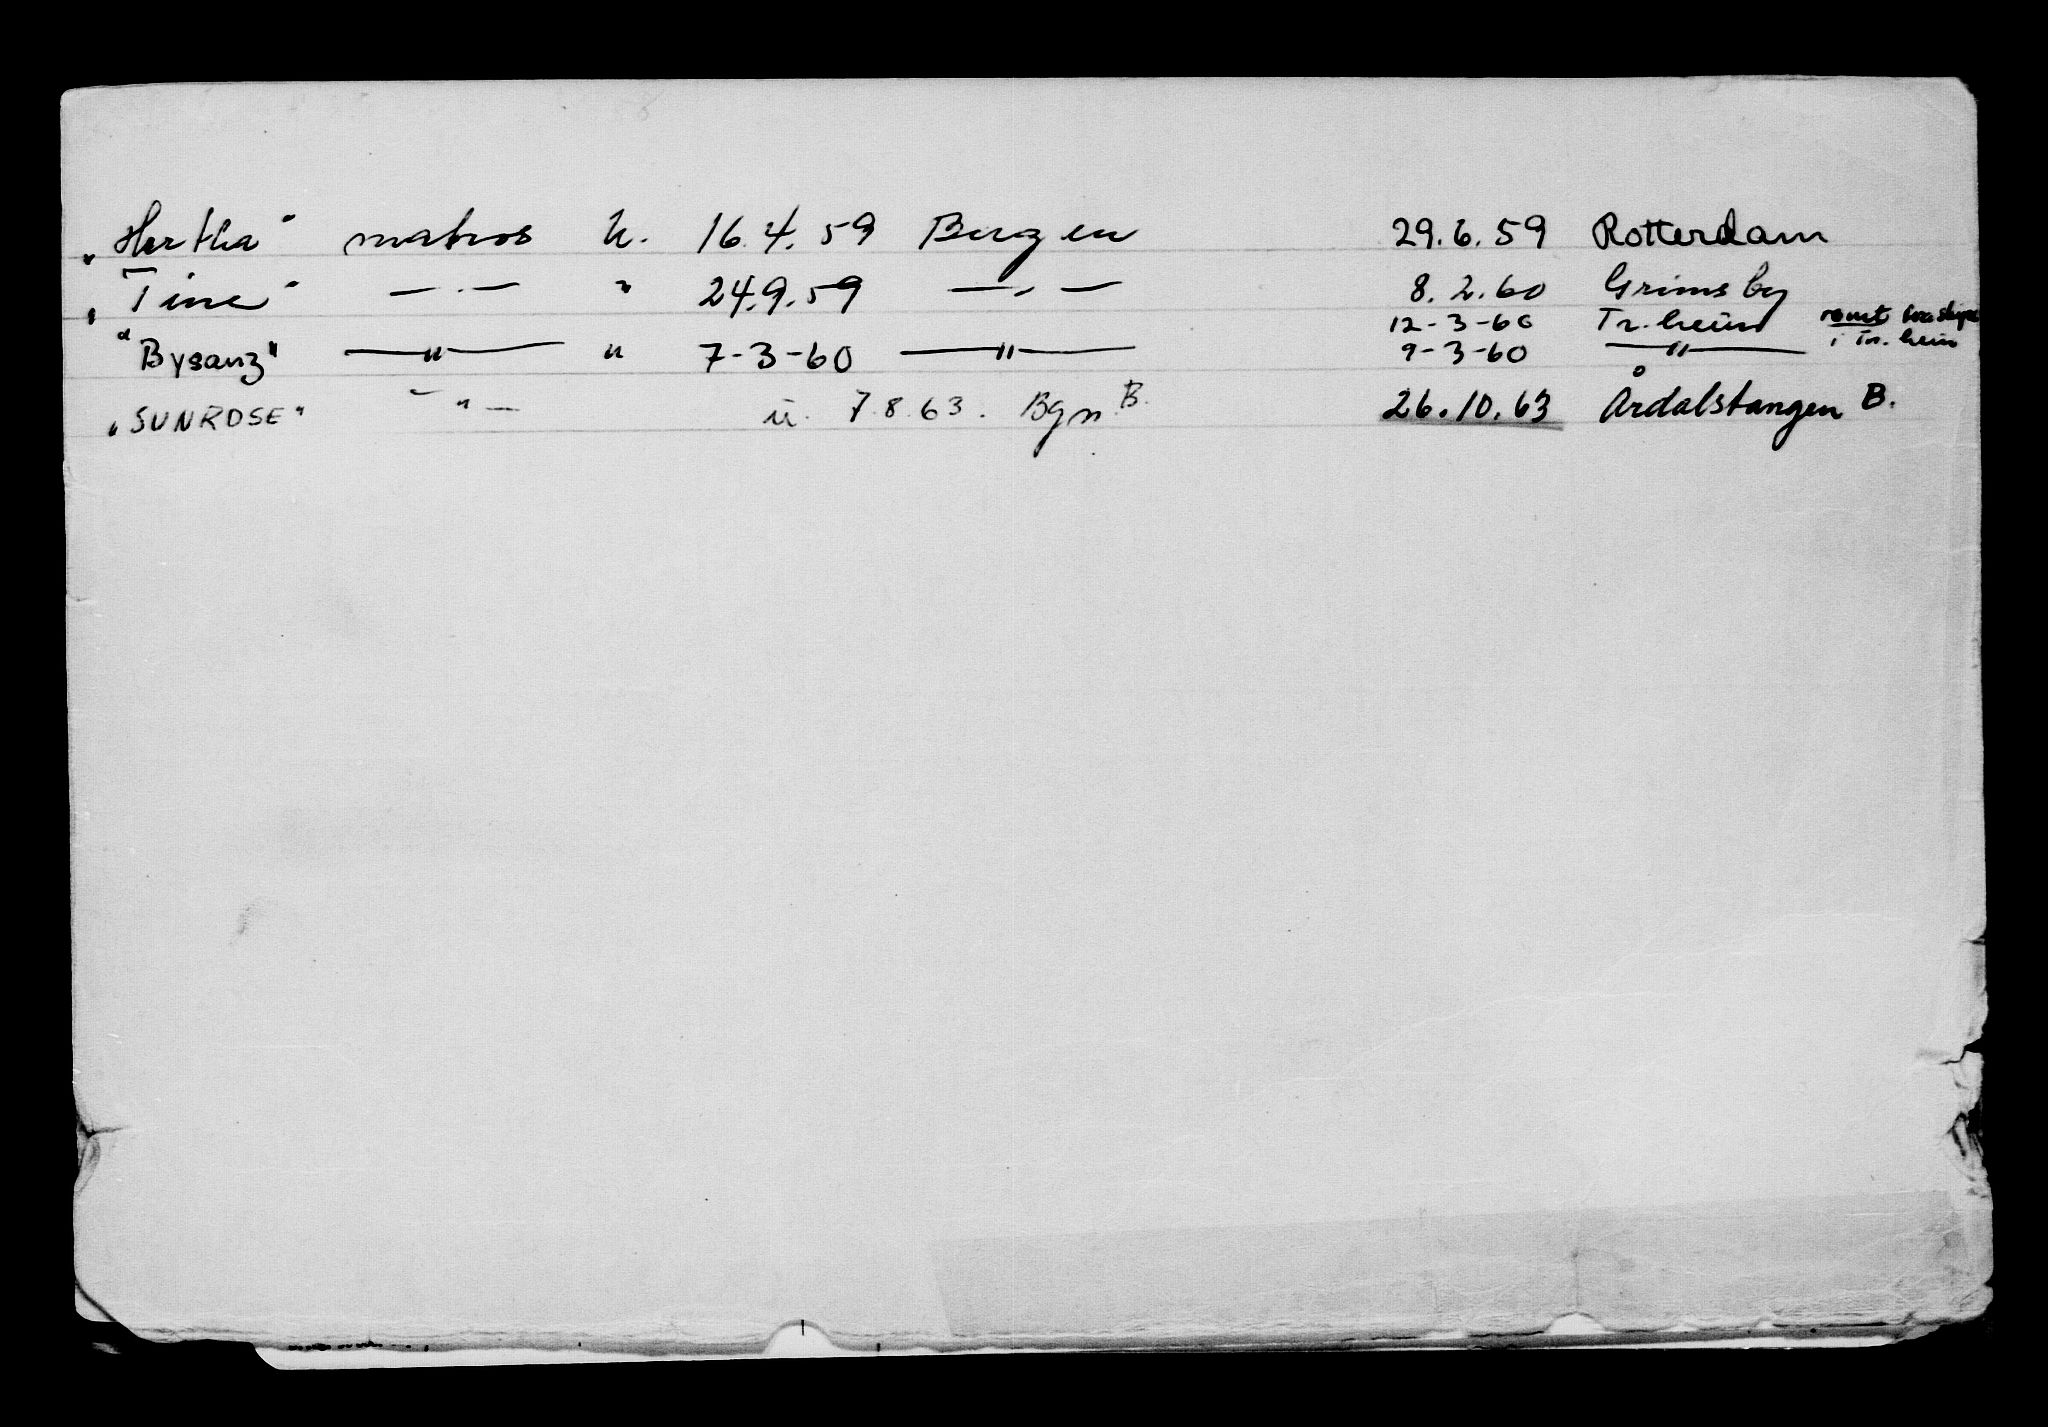 „Hertha" matros u. 16.4.59 Bergen 29.6.59 Rotterdam
„Tine" — . — " 24.9.59 — . — 8.2.60 Grimsby
12-3-60 Tr.heim rømt
"Bysanz" —"— " 7-3-60 —"— 9-3-60 —"— i Tr.heim
„SUNROSE" —"— u. 7.8.63. Bgn. B. 26.10.63 Årdalstangen B.